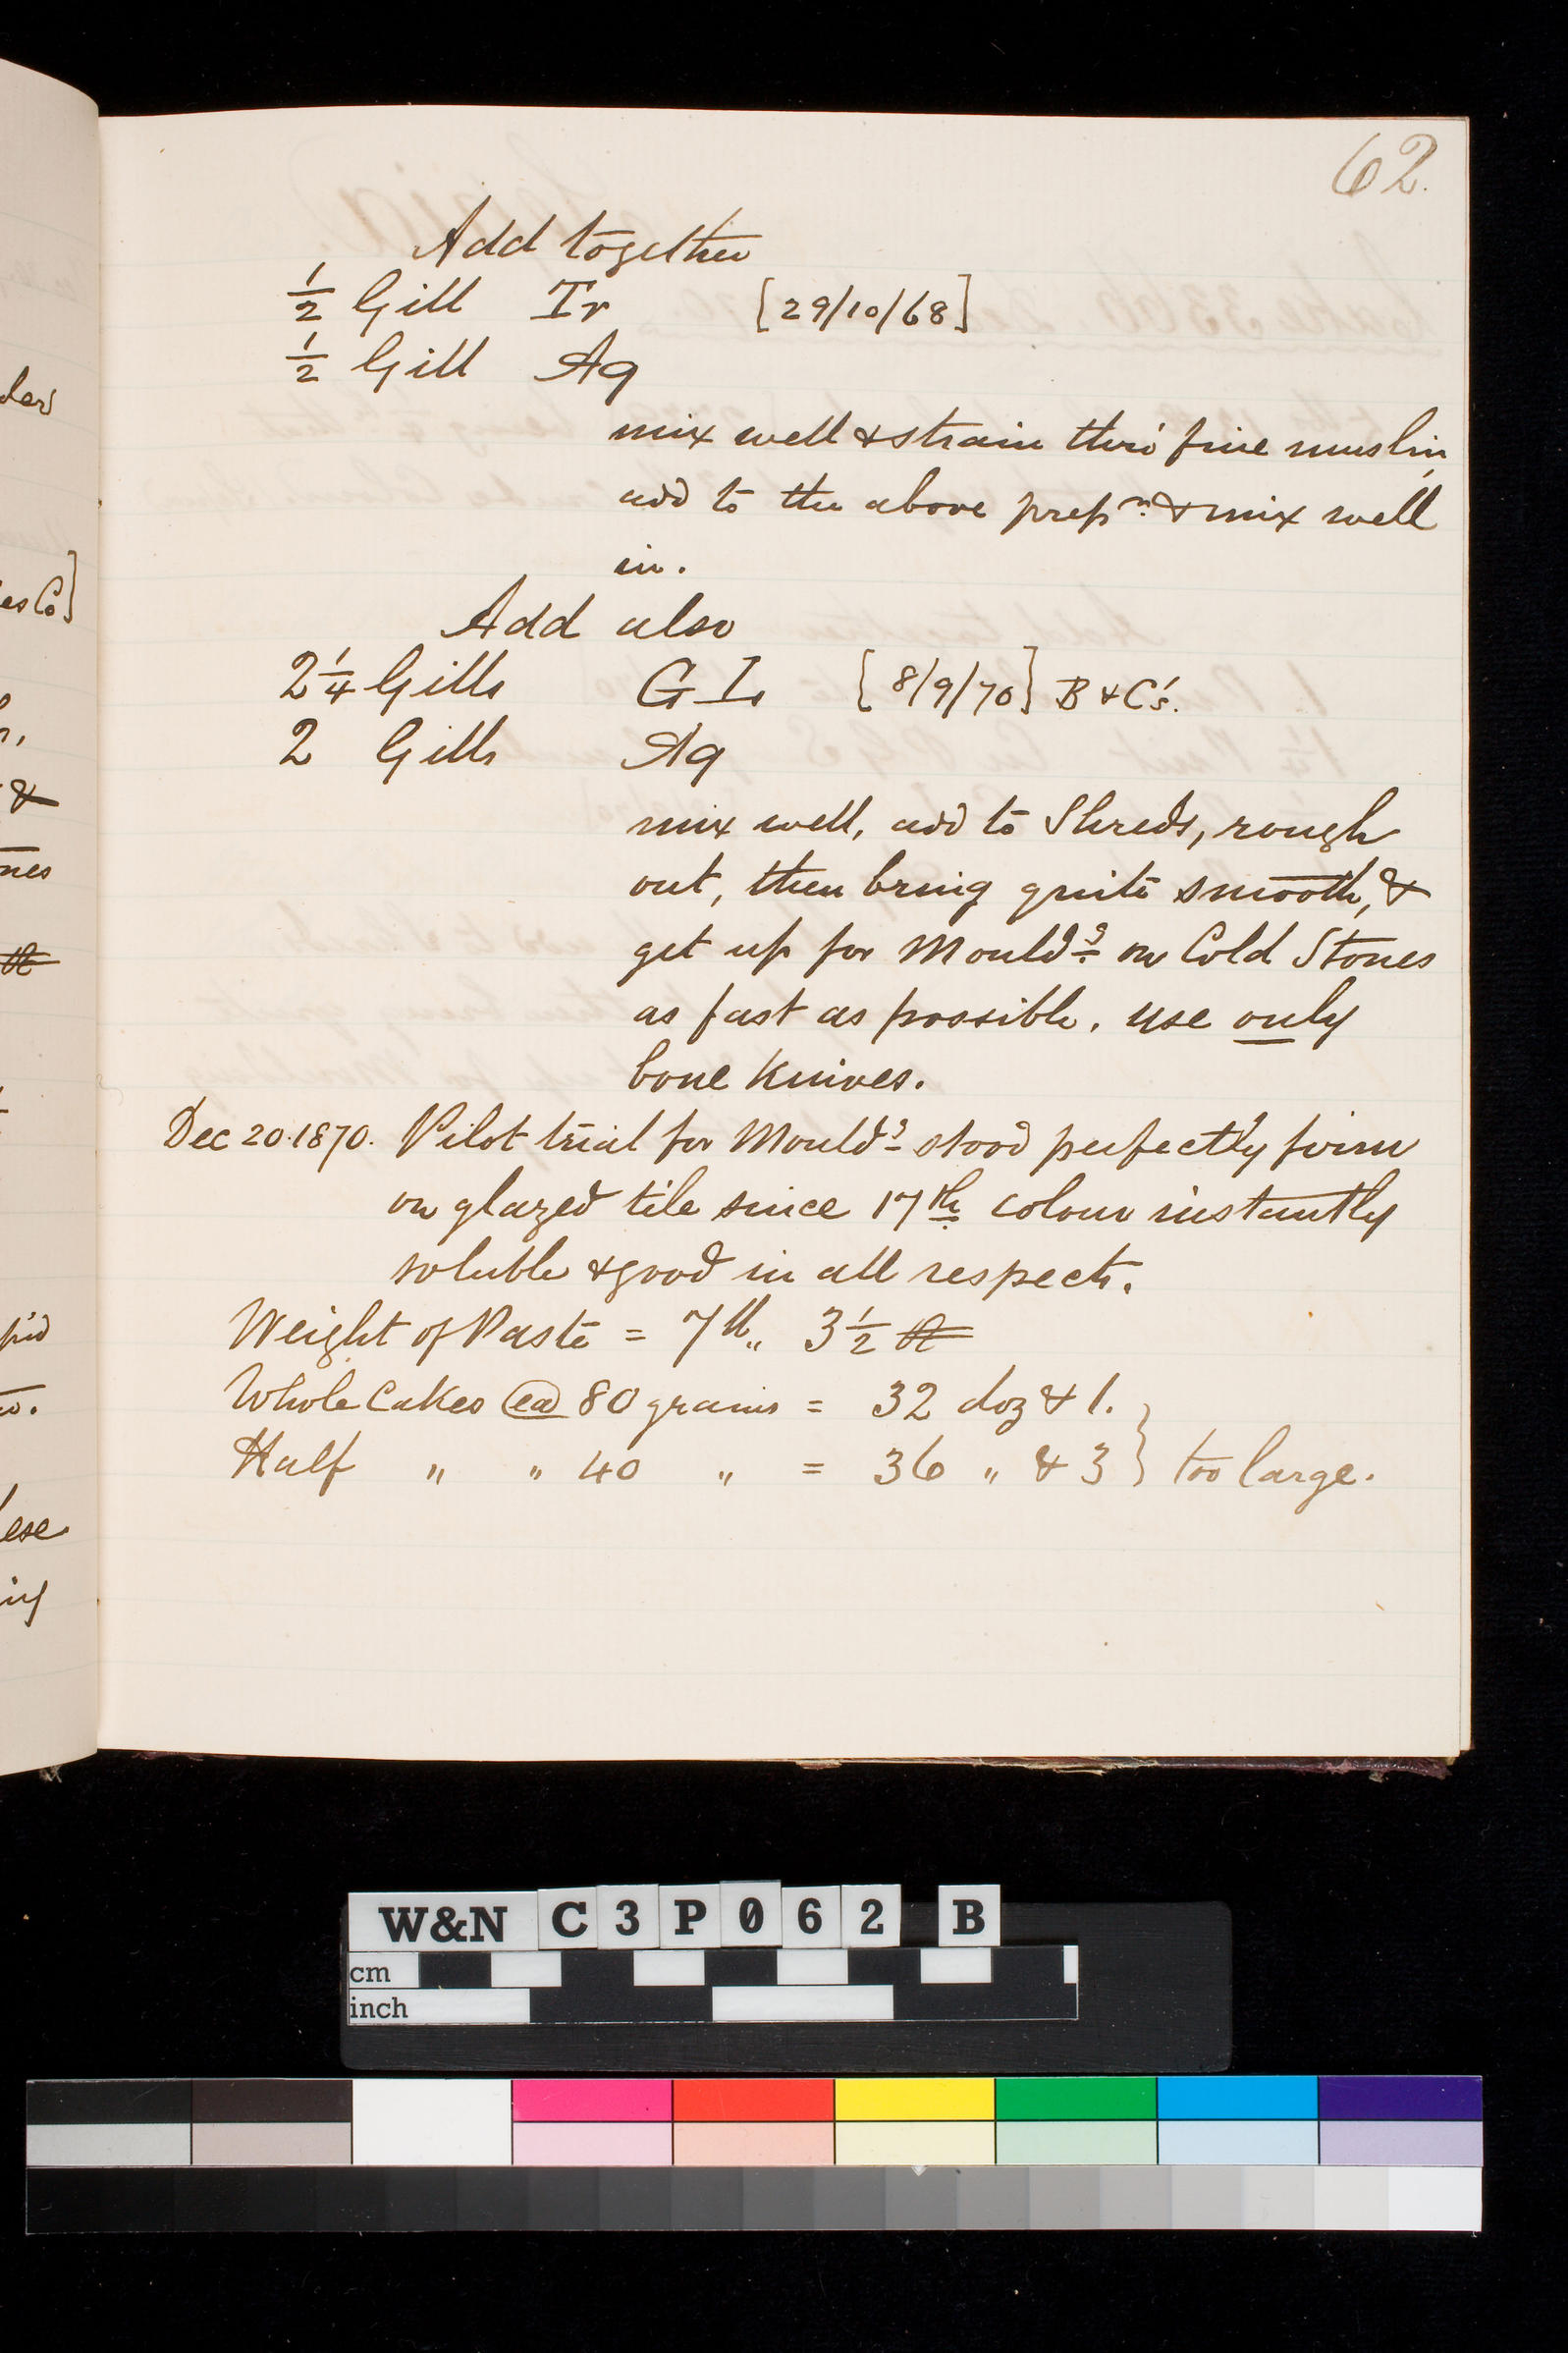 62.
Add together
1/2 Gill Tr [29/10/68]
1/2 Gill Aq
mix well & strain thro' fine muslin,
add to the above prepn. & mix well
in.
Add also
2 1/4 Gills GL [8/9/70] B & C's.
2 Gills Aq
mix well, add to Shreds, rough
out, then bring quite smooth, &
get up for Mouldg. on Cold Stones
as fast as possible. use only
bone Knives.
Dec 20. 1870. Pilot trial for Mouldg. stood perfectly firm
on glazed tile since 17th. colour instantly
soluble & good in all respects.
Weight of Paste = 7 lb,, 3 1/2
Whole Cakes @ 80 grains = 32 doz & 1.
Half " " 40 " = 36 " & 3 } too large.
der
es Co]
&
nes
ese
W&N C3P062 B
cm
inch